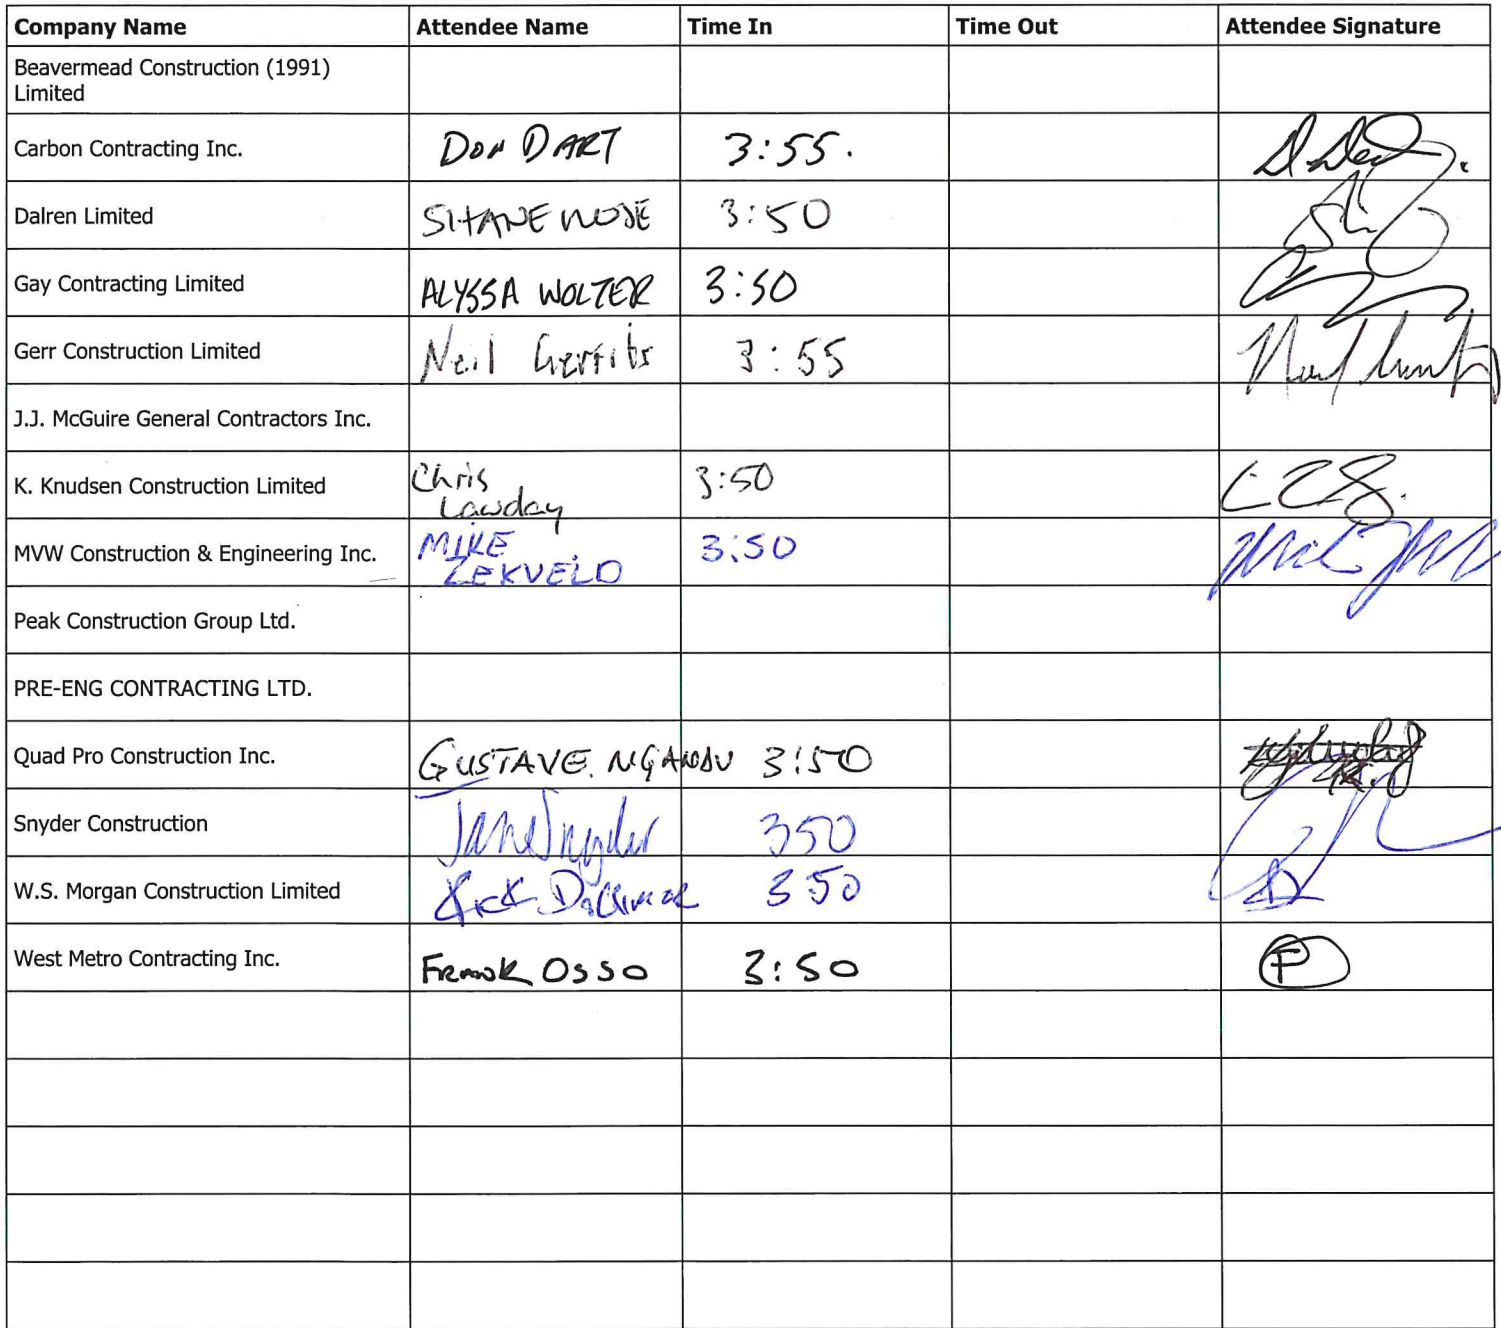 Company Name Attendee Name Time In Time Out Attendee Signature
Beavermead Construction (1991)
Limited
Carbon Contracting Inc. DON DART 3:55.
Dalren Limited SHANE 3:50
Gay Contracting Limited ALYSSA WOLTER 3:50
Gerr Construction Limited Neil Gerrits 3:55
J.J. McGuire General Contractors Inc.
K. Knudsen Construction Limited Chris 3:50
Lawday
MVW Construction & Engineering Inc. MIKE 3:50
ZEKVELD
Peak Construction Group Ltd.
PRE-ENG CONTRACTING LTD.
Quad Pro Construction Inc. GUSTAVE NGANDU 3:50
Snyder Construction Snyder 350
W.S. Morgan Construction Limited 350
West Metro Contracting Inc. FRANK OSSO 3:50